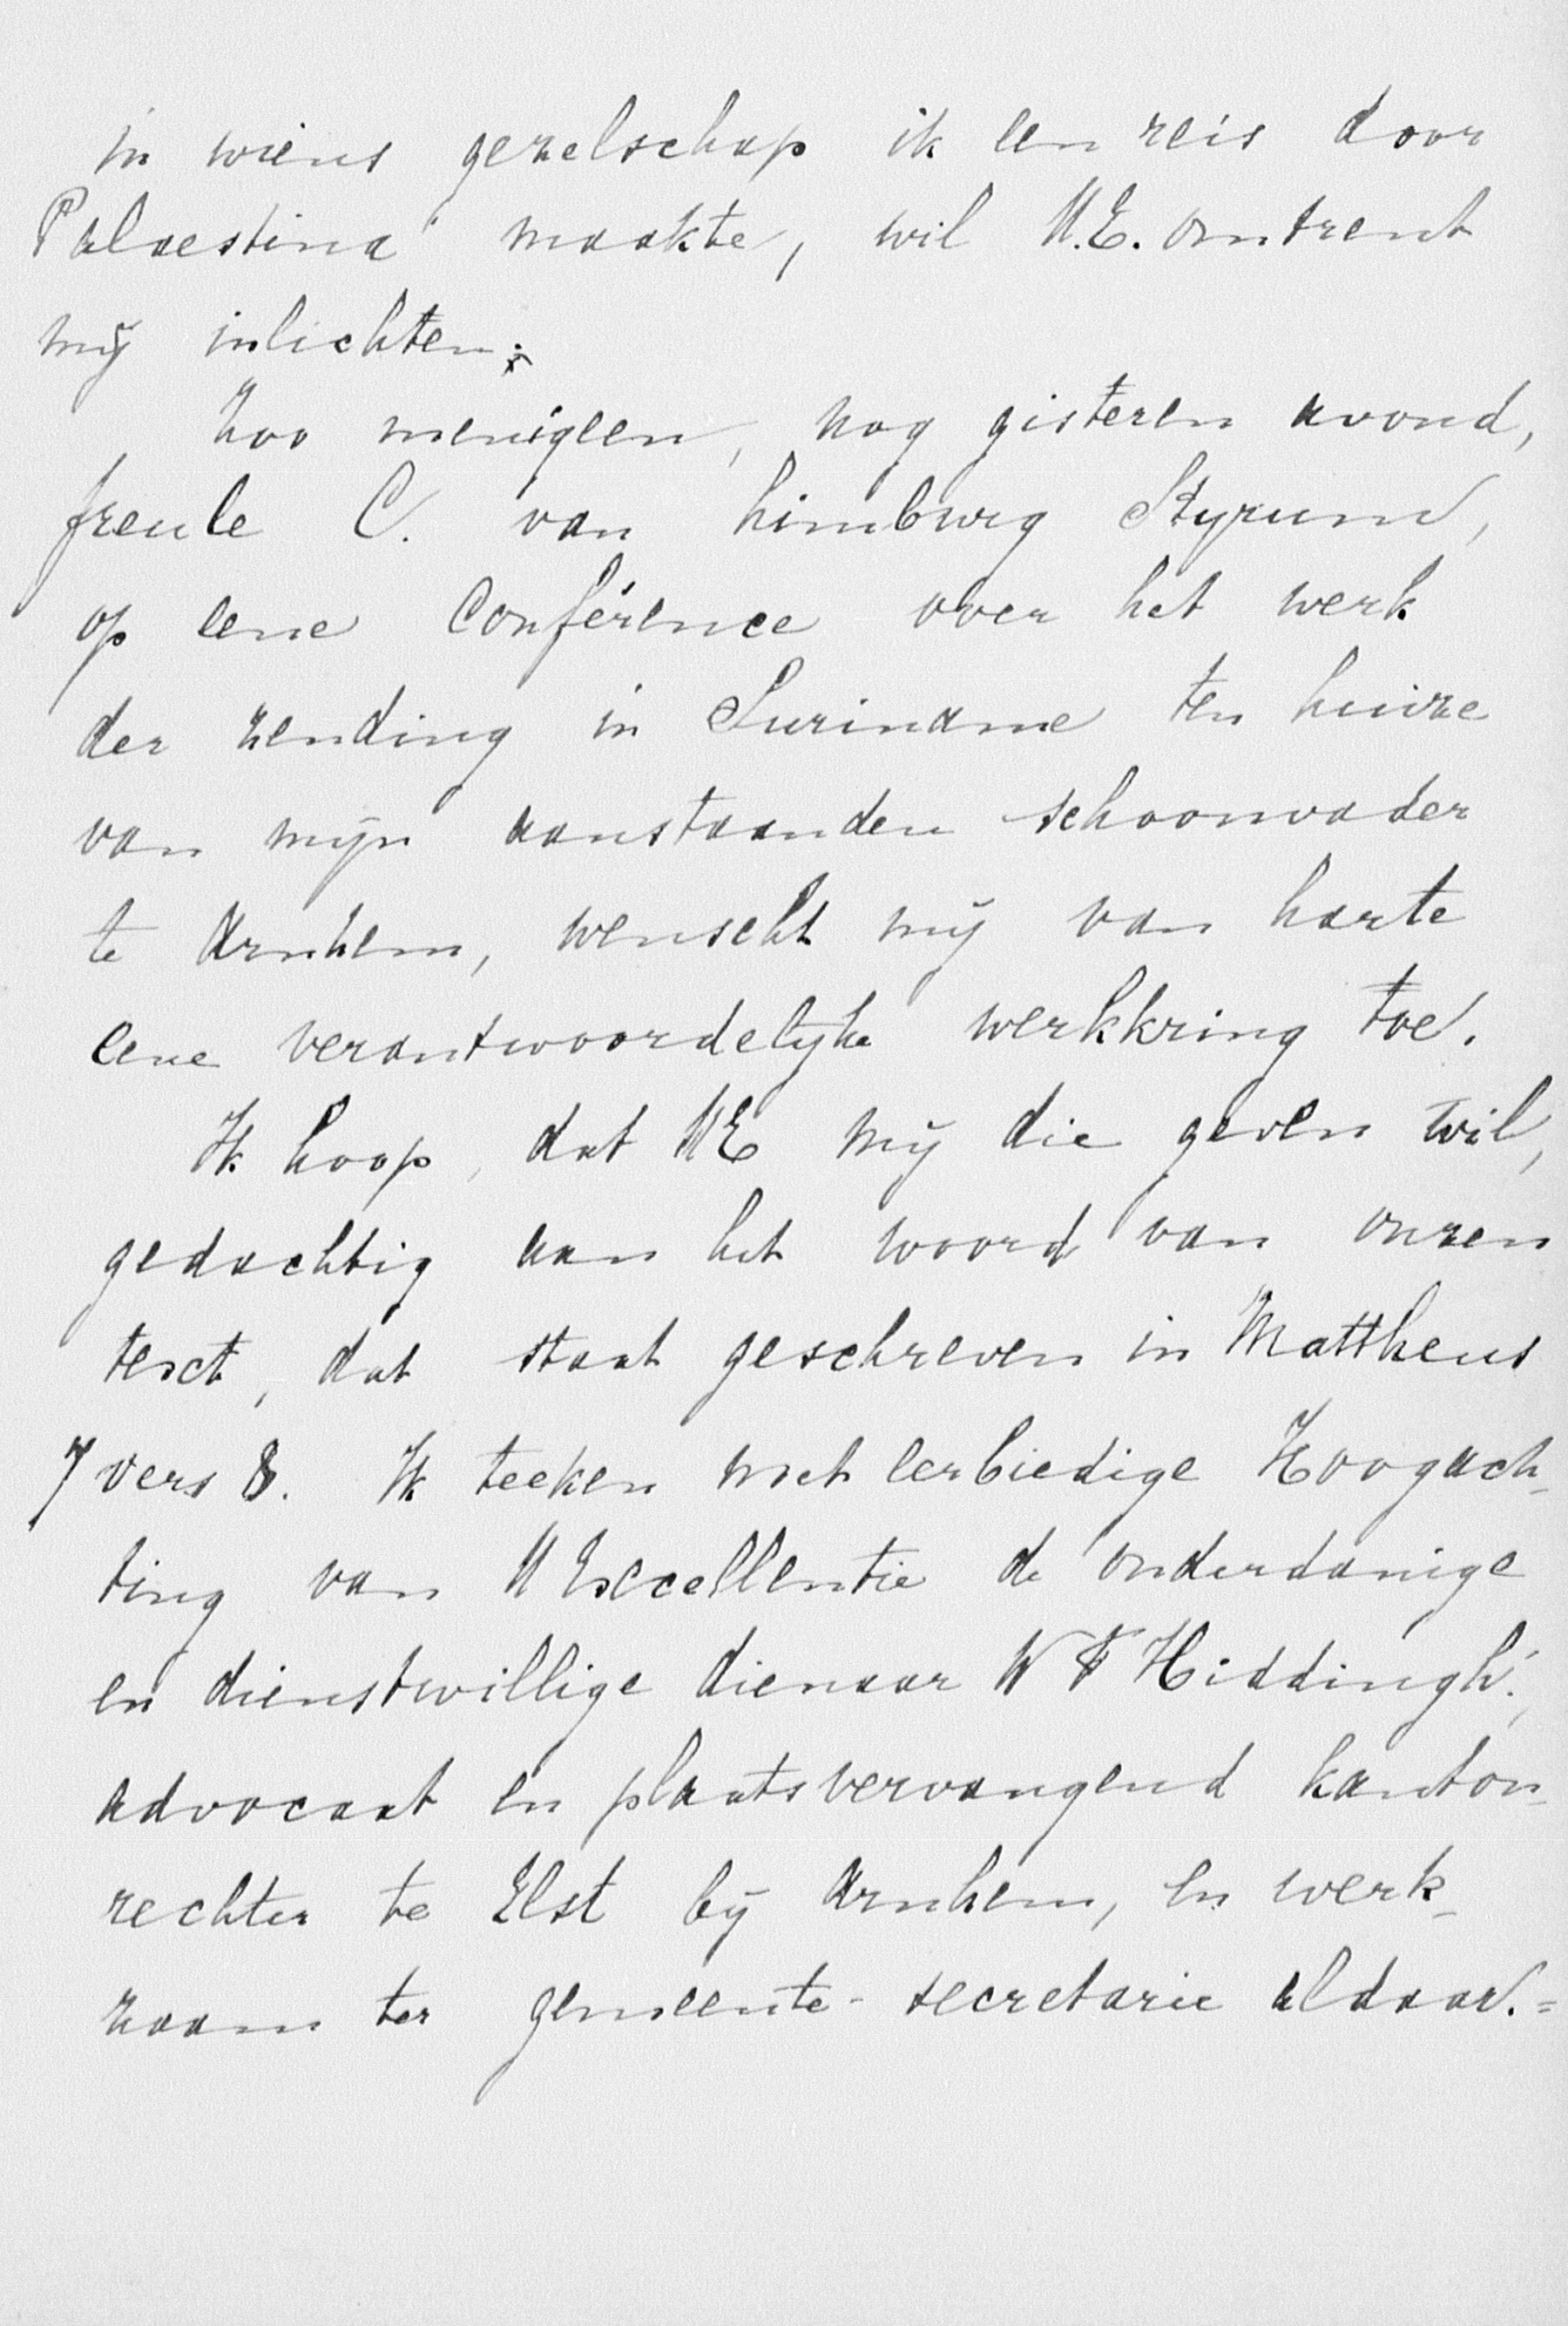 in wiens gezelschap ik een reis door
Palaestina maakte, wil U.E. omtrent
mij inlichten.
Zoo menigeen, nog gisteren avond,
freule C. van Limburg Styrum,
op eene Conférence over het werk
der zending in Suriname ten huize
van mijn aanstaanden schoonvader
te Arnhem, wenscht mij van harte
eene verantwoordelijke werkkring toe.
Ik hoop, dat UE mij die geven wil,
gedachtig aan het woord van onzen
text, dat staat geschreven in Mattheus
7 vers 8. Ik teeken met eerbiedige Hoogach-
ting van U Excellentie de onderdanige
en dienstwillige dienaar W F Hiddingh.,
advocaat en plaatsvervangend kanton-
rechter te Elst bij Arnhem, en werk-
zaam ter gemeente-secretarie aldaar.=